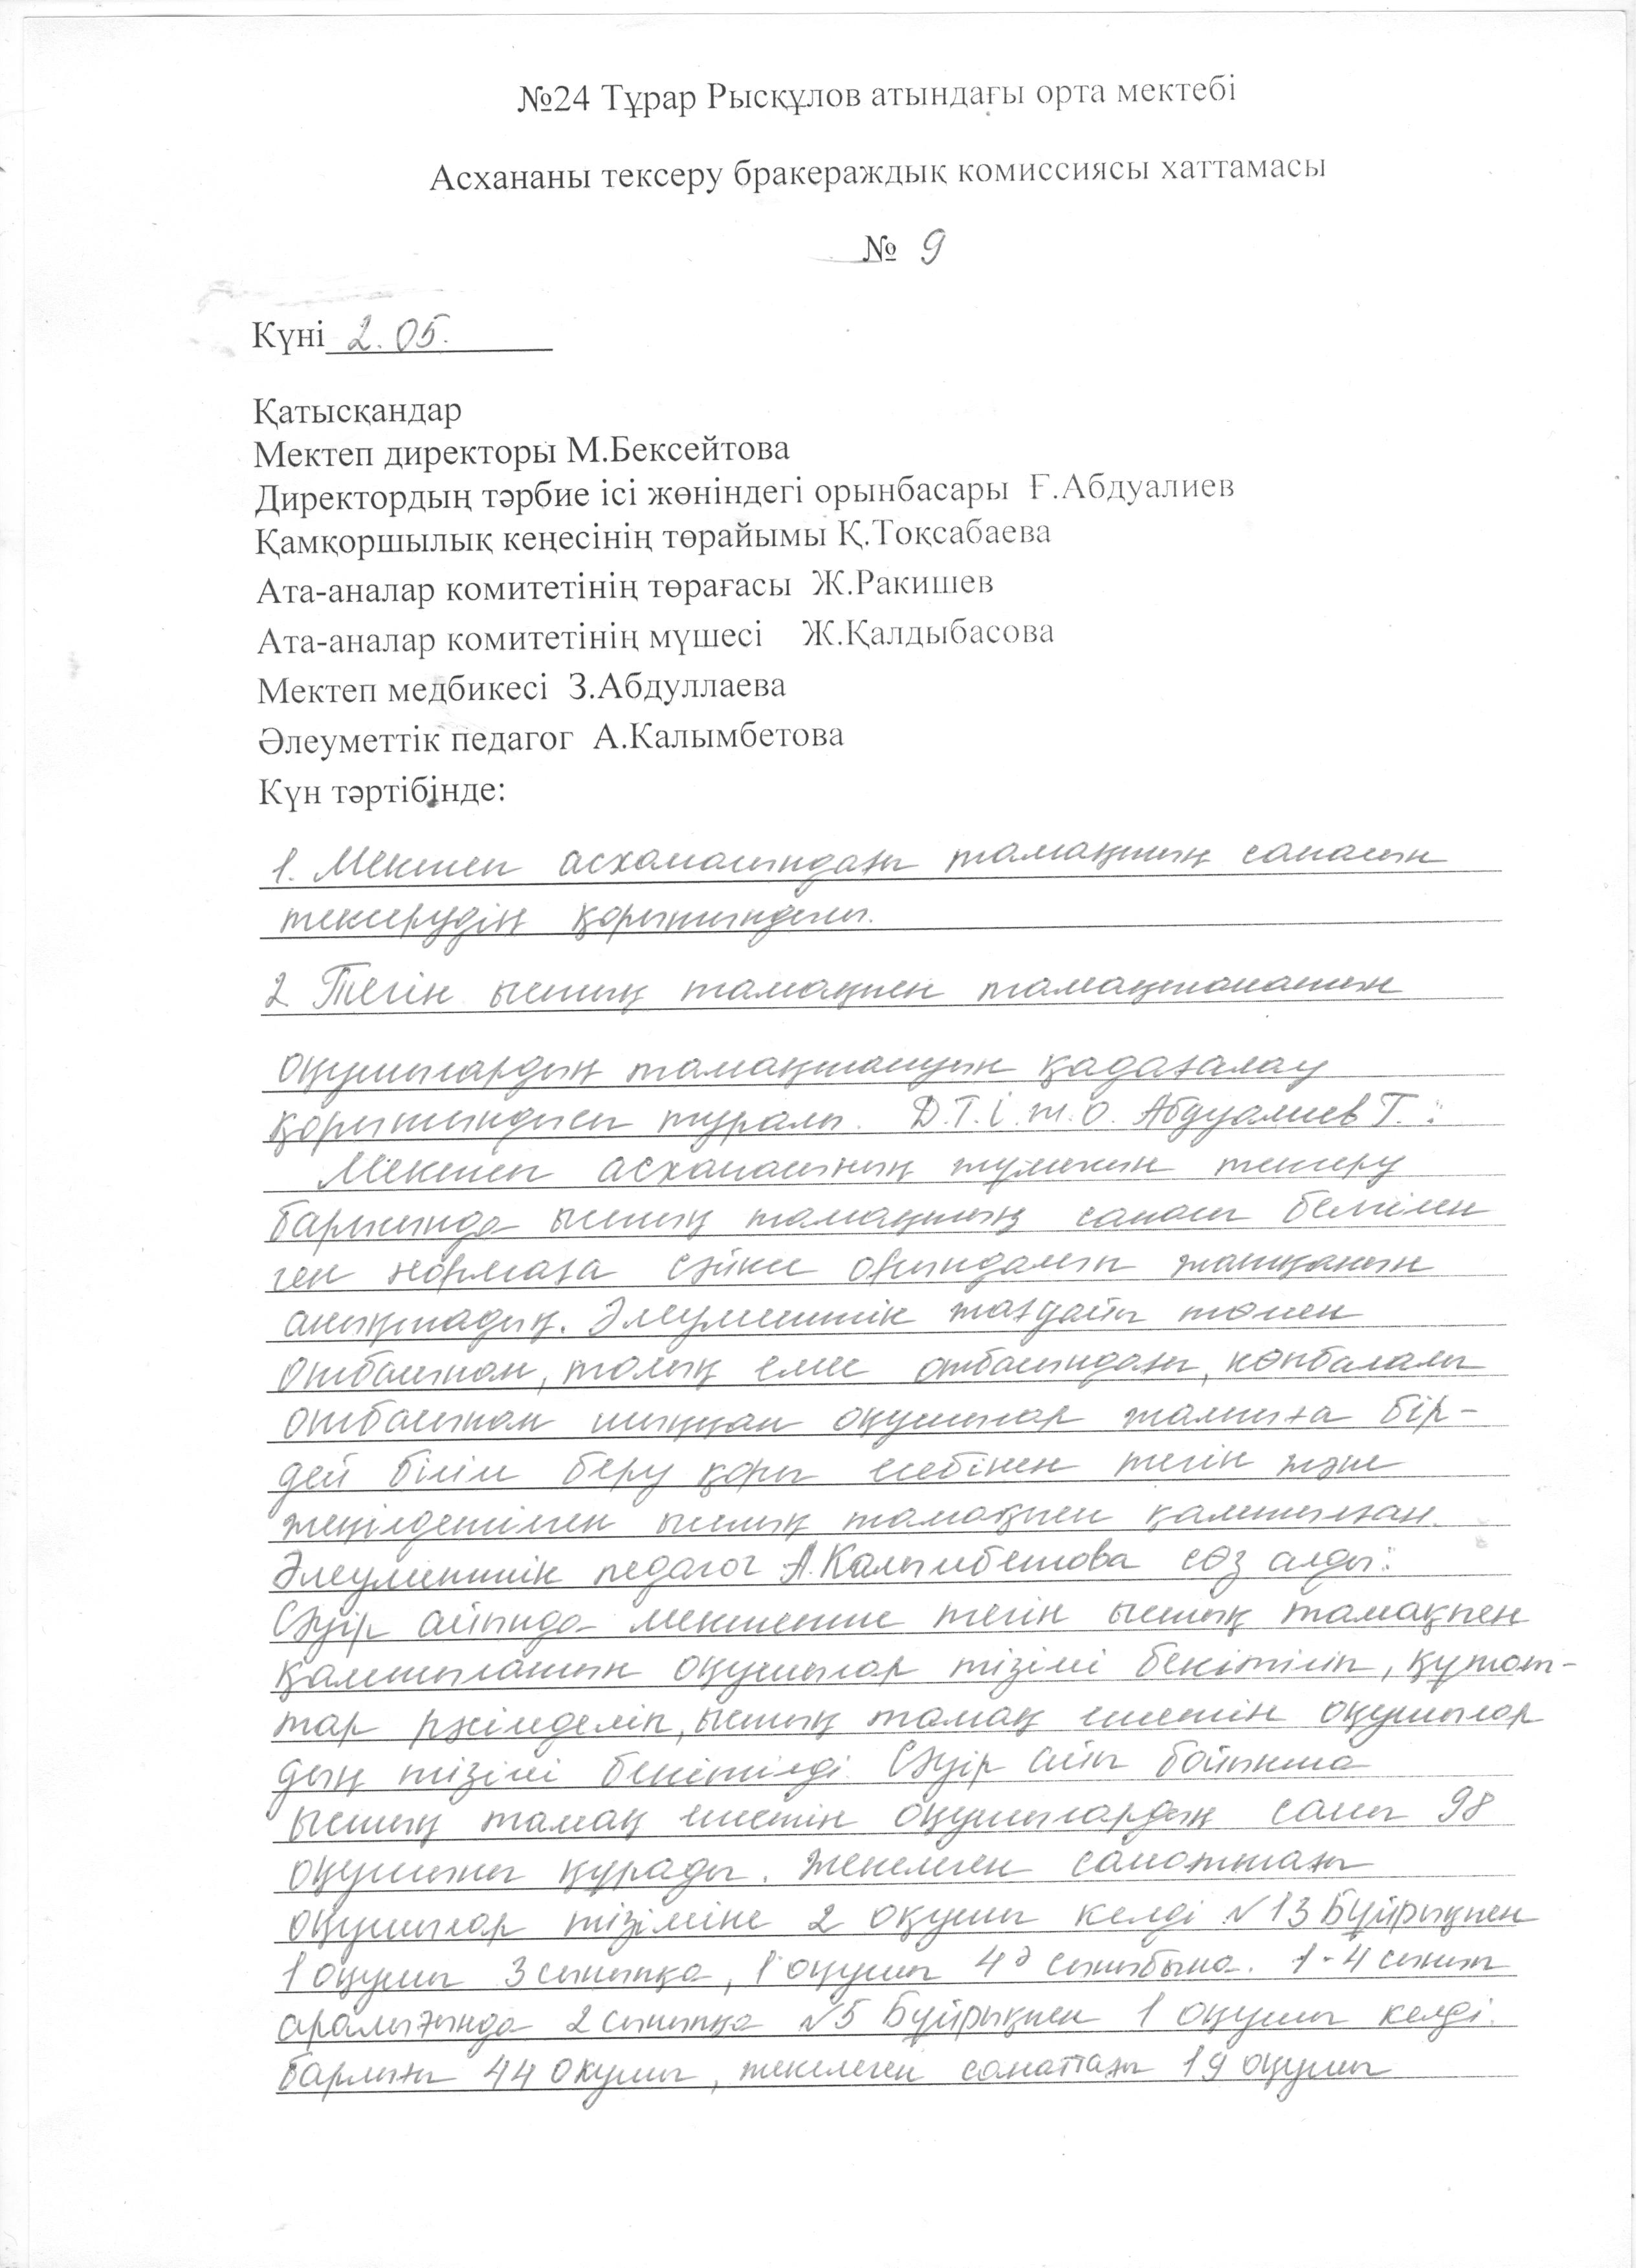 №24 Тұрар Рысқұлов атындағы орта мектебі
Асхананы тексеру бракераждық комиссиясы хаттамасы
№ 9
Күні 2.05.
Қатысқандар
Мектеп директоры М.Бексейтова
Директордың тәрбие ісі жөніндегі орынбасары Ғ.Абдуалиев
Қамқоршылық кеңесінің төрайымы Қ.Тоқсабаева
Ата-аналар комитетінің төрағасы Ж.Ракишев
Ата-аналар комитетінің мүшесі Ж.Қалдыбасова
Мектеп медбикесі З.Абдуллаева
Әлеуметтік педагог А.Калымбетова
Күн тәртібінде:
1. Мектеп асханасындағы тамақтың сапасын
тексерудің қорытындысы.
2 Тегін ыстық тамақпен тамақтанатын
оқушылардың тамақтануын қадағалау
қорытындысы туралы. Д.Т.І.ж.О. Абдуалиев Ғ.:
Мектеп асханасының жұмысын тексеру
барысында ыстық тамақтың сапасы белгілен
ген нормаға сәйкес орындалып жатқанын
анықтадық. Әлеуметтік жағдайы төмен
отбасынан, толық емес отбасындағы, көпбалалы
отбасынан шыққан оқушылар жалпыға бір-
дей білім беру қоры есебінен тегін және
жеңілдетілген ыстық тамақпен қамтылған.
Әлеуметтік педагог А.Калымбетова сөз алды:
Сәуір айында мектепте тегін ыстық тамақпен
қамтылатын оқушылар тізімі бекітіліп, құжат-
тар рәсімделіп, ыстық тамақ ішетін оқушылар
дың тізімі бекітілді. Сәуір айы бойынша
ыстық тамақ ішетін оқушылардың саны 98
оқушыны құрады. Жекелеген санаттағы
оқушылар тізіміне 2 оқушы келді №13 Бұйрықпен
1 оқушы 3 сыныпқа, 1 оқушы 4ә сыныбына. 1-4 сынып
аралығында 2 сыныпқа №5 Бұйрықпен 1 оқушы келді.
барлығы 44 оқушы, жекелеген санаттағы 19 оқушы